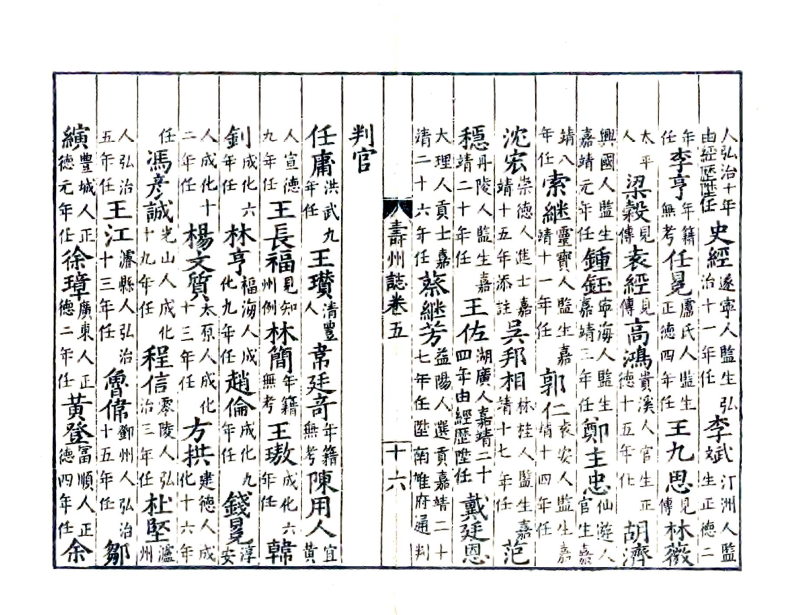 人弘治十年由經歷陞任史經遂寧人監生弘治十一年任李斌汀洲人監生正德二
年任李亨年籍無考任冕盧氏人監生正德四年任王九思見傳林薇
太平人梁穀見傳袁經見傳高鴻貴溪人官生正德十五年任胡濟
興國人監生嘉靖元年任鍾鈺寧海人監生嘉靖三年任鄭主忠仙遊人官生嘉
靖八年任索繼靈寶人監生嘉靖十一年任郭仁袁安人監生嘉靖十四年任
沈宏崇德人進士嘉靖十五年添註吳邦相林桂人監生嘉靖十七年任范
穩丹陵人監生嘉靖二十年任王佐湖廣人嘉靖二十四年由經歷陞任戴廷恩
大理人貢士嘉靖二十六年任蔡繼芳益陽人選貢嘉靖二十七年任陞南雄府通判
壽州誌卷五
十六
判官
任庸洪武九年任王瓚清豐人常廷竒年籍無考陳用人宜黃
人宣德九年任王長福見知州例林簡年籍無考王璈成化六年任韓
釗成化六年任林亨福海人成化九年任趙倫成化九年任錢冕淳安
人成化十二年任楊文質太原人成化十三年任方拱建德人成化十六年
任馮彥誠光山人成化十九年任程信零陵人弘治三年任杜堅瀘州
人弘治五年任王江濬縣人弘治十三年任魯偉鄧州人弘治十五年任鄒
縯豐城人正德元年任徐璋廣東人正德二年任黃登富順人正德四年任余